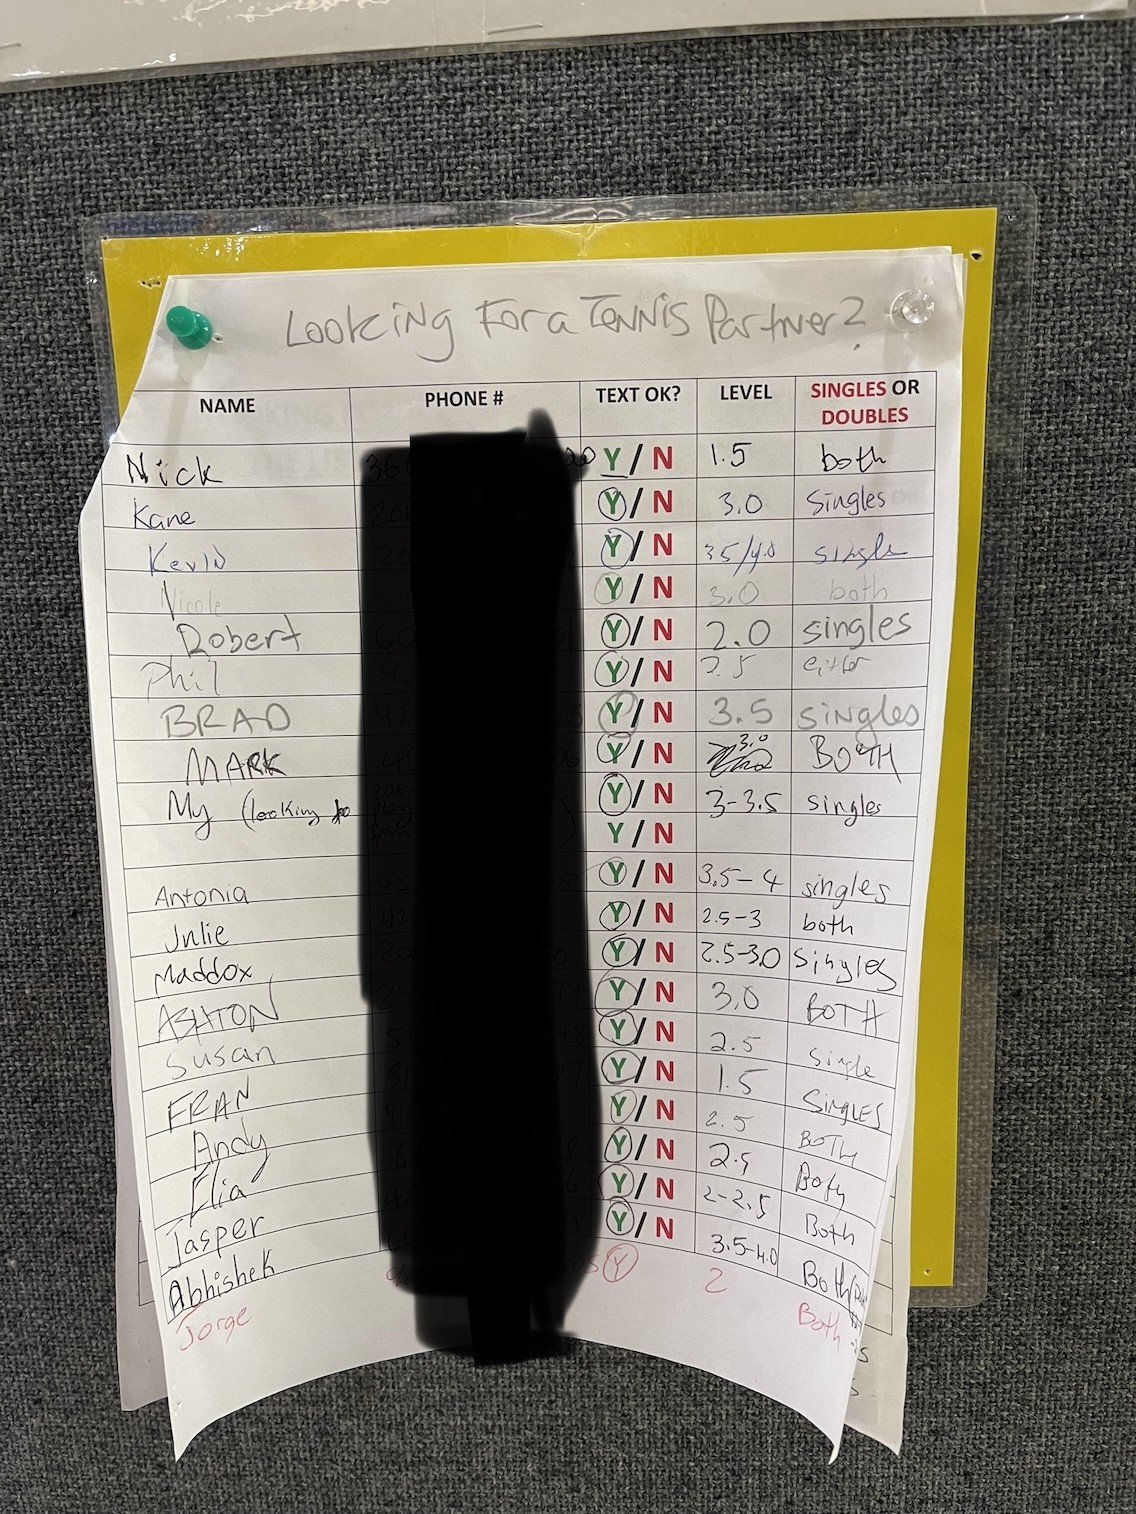 Looking For a Tennis Partner?
NAME PHONE # TEXT OK? LEVEL SINGLES OR DOUBLES
Nick 36 Y / N 1.5 both
Kane 20 Y / N 3.0 Singles
Kevin 20 Y / N 3.5/4.0 single
Nicole Y / N 3.0 both
Robert 60 Y / N 2.0 singles
Phil Y / N either
BRAD 42 Y / N 3.5 singles
MARK 40 06 Y / N 3.0 BOTH
My (looking to 206- play Y / N 3-3.5 singles
) Y / N
Antonia 42 Y / N 3.5-4 singles
Julie 42 Y / N 2.5-3 both
Maddox 20 Y / N 2.5-3.0 Singles
ASHTON 25 Y / N 3.0 BOTH
Susan Y / N 2.5 Single
FRAN Y / N 1.5 SinglES
Andy Y / N 2.5 BOTH
Elia 6 Y / N 2.5 Both
Jasper 42 6 Y / N 2-2.5 Both
Abhishek Y / N 3.5-4.0 Both
Jorge Y 2 Both